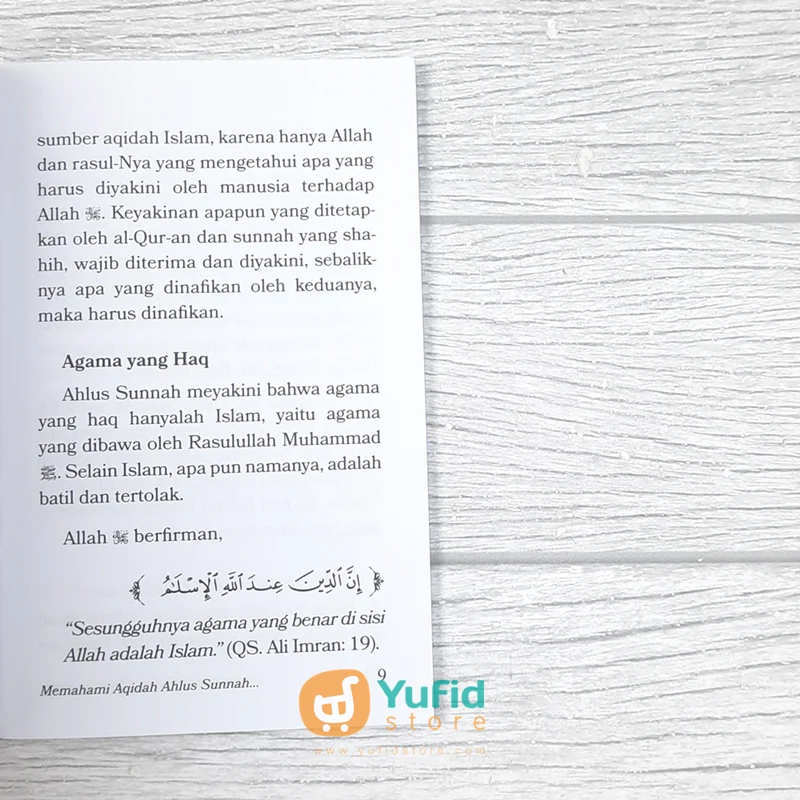 sumber aqidah Islam, karena hanya Allah
dan rasul-Nya yang mengetahui apa yang
harus diyakini oleh manusia terhadap
Allah ﷻ. Keyakinan apapun yang ditetap-
kan oleh al-Qur-an dan sunnah yang sha-
hih, wajib diterima dan diyakini, sebalik-
nya apa yang dinafikan oleh keduanya,
maka harus dinafikan.
Agama yang Haq
Ahlus Sunnah meyakini bahwa agama
yang haq hanyalah Islam, yaitu agama
yang dibawa oleh Rasulullah Muhammad
ﷺ. Selain Islam, apa pun namanya, adalah
batil dan tertolak.
Allah ﷻ berfirman,
﴿ إِنَّ ٱلدِّينَ عِندَ ٱللَّهِ ٱلْإِسْلَٰمُ ﴾
“Sesungguhnya agama yang benar di sisi
Allah adalah Islam.” (QS. Ali Imran: 19).
Memahami Aqidah Ahlus Sunnah... 9
Yufid
store
www.yufidstore.com